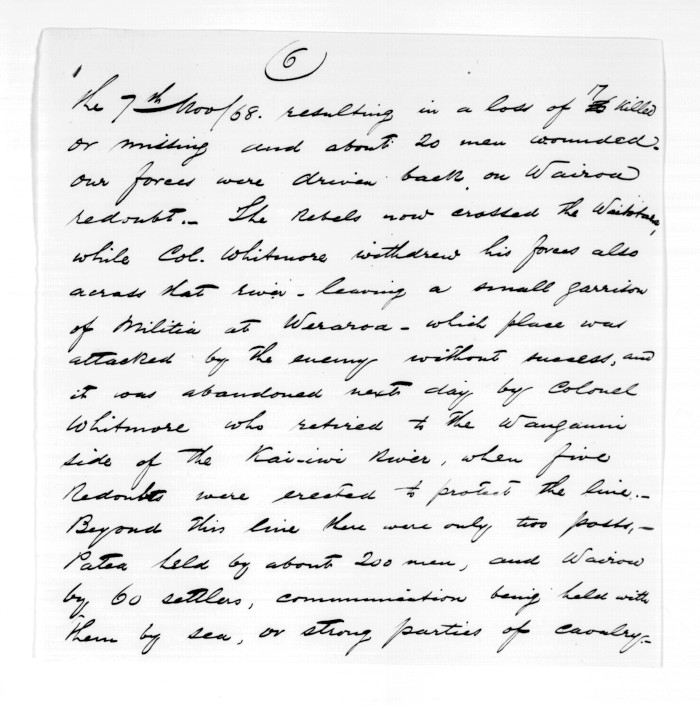 6
the 7th Nov/68. resulting in a loss of 17 killed
or missing and about 20 men wounded.
our forces were driven back on Wairoa
redoubt. – The Rebels now crossed the Waitotara,
while Col. Whitmore withdrew his forces also
across that river – leaving a small garrison
of Militia at Weraroa – which place was
attacked by the enemy without success, and
it was abandoned next day by Colonel
Whitmore who retired to the Wanganui
side of the Kai-iwi River, when five
Redoubts were erected to protect the line. –
Beyond this line there were only two posts, –
Patea held by about 200 men, and Wairoa
by 60 settlers, communication being held with
them by sea, or strong parties of cavalry. –